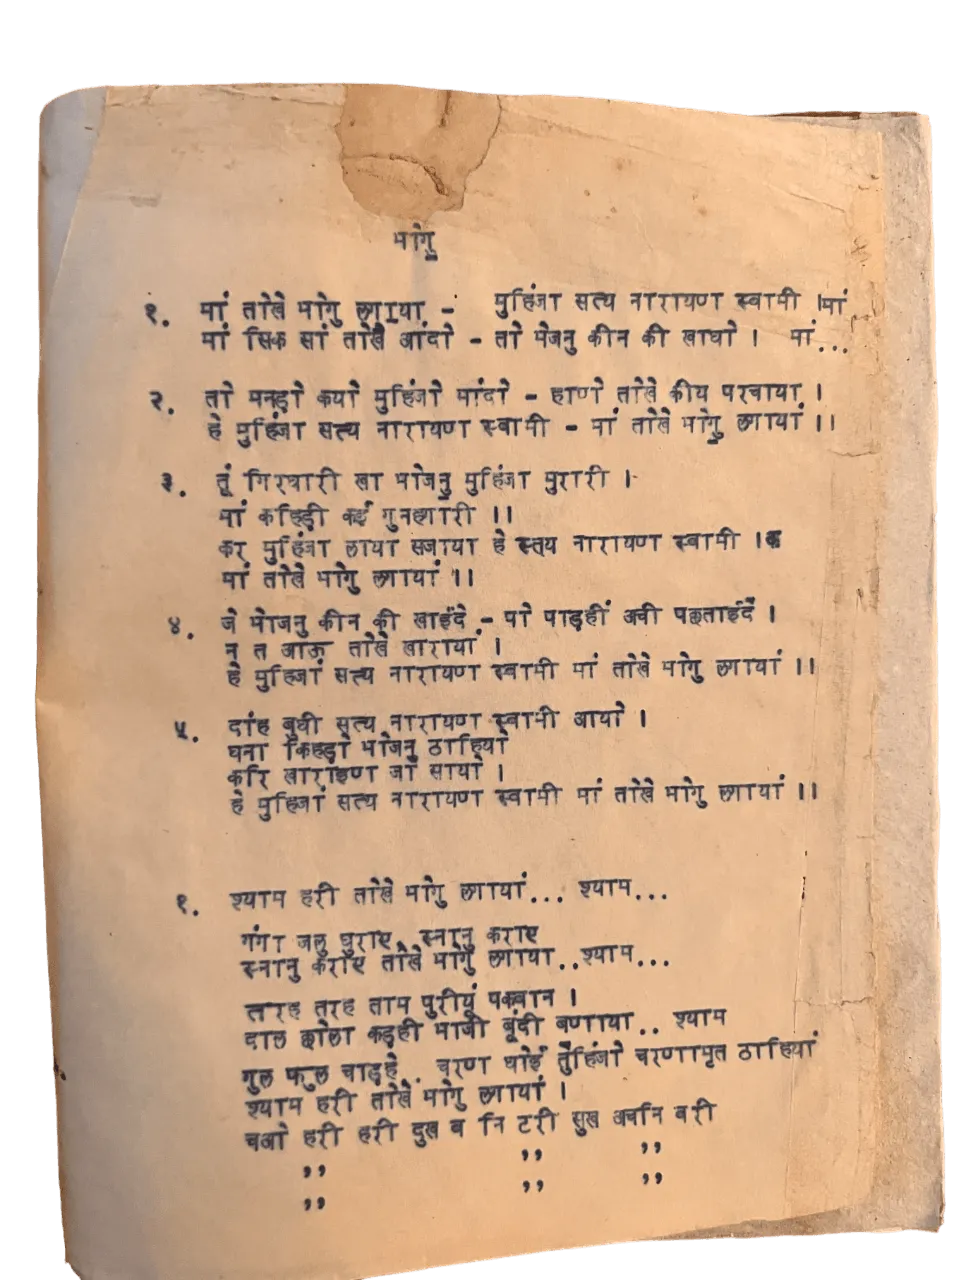 भोगु
१. मां तोखे भोगु लगाया - मुहिंजा सत्य नारायण स्वामी ।मां
मां सिक सां तोखे आंदो - तो भेजनु कीन की खाधो । मां...
२. तो मनड़ो कयो मुहिंजो मांदो - हाणे तोखे कीय परचाया ।
हे मुहिंजा सत्य नारायण स्वामी - मां तोखे भोगु लगायां ।।
३. तूं गिरधारी खा भोजनु मुहिंजा मुरारी ।
मां कहिड़ी कई गुनहगारी ।।
कर मुहिंजा लाया सजाया हे स्तय नारायण स्वामी ।
मां तोखे भोगु लगायां ।।
४. जे भोजनु कीन की खाइंदे - पो पाड़ही अची पछताइंदें ।
न त आऊ तोखे लारायां ।
हे मुहिजां सत्य नारायण स्वामी मां तोखे भोगु लगायां ।।
५. दांह बुधी सत्य नारायण स्वामी आयो ।
धना किहड़ो भोजनु ठाहियो
करि नाराइण जो सायो ।
हे मुहिजां सत्य नारायण स्वामी मां तोखे भोगु लगायां ।।
१. श्याम हरी तोखे भोगु लगायां... श्याम...
गंगा जलु घुराए, स्नानु कराए
स्नानु कराए तोखे भोगु लगाया..श्याम...
तरह तरह ताम पुरीयूं पकवान ।
दाल छोला कड़ही भाजी बूंदी बणाया.. श्याम
गुल फुल चाड़हे.. चरण धोई तुंहिंजो चरणामृत ठाहियां
श्याम हरी तोखे भोगु लगायां ।
चओ हरी हरी दुख व नि टरी सुख अचनि वरी
,, ,, ,,
,, ,, ,,